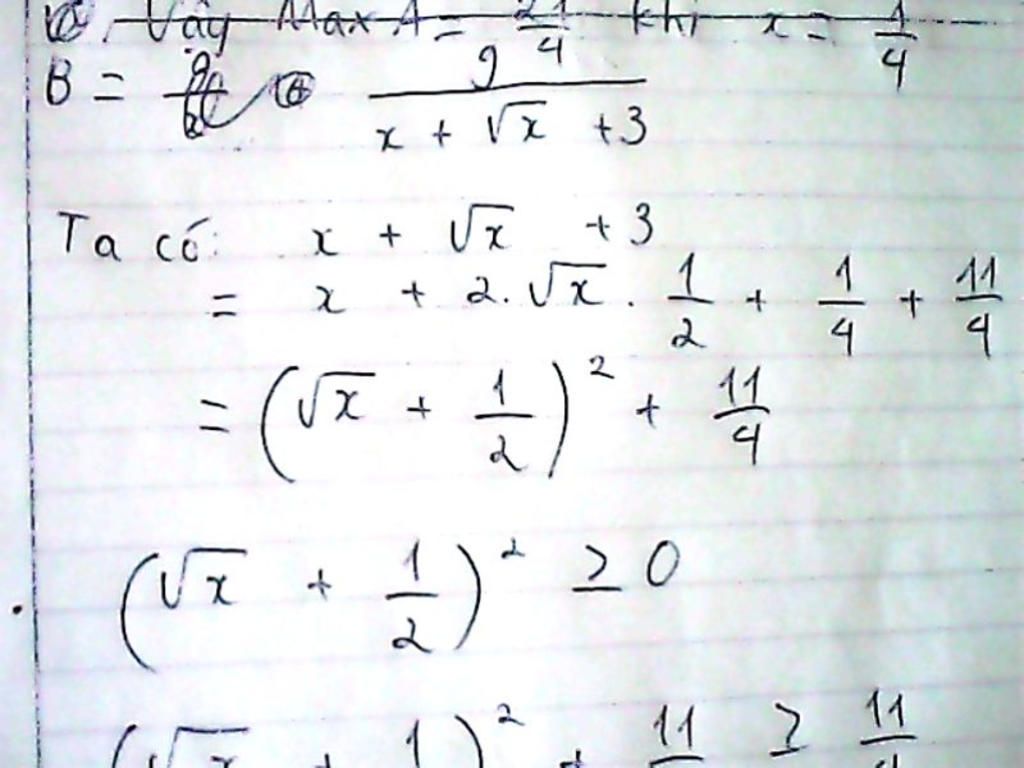 Vậy Max A = 21/4 khi x = 1/4
B = 9/(x + √x + 3)
Ta có: x + √x + 3
= x + 2.√x . 1/2 + 1/4 + 11/4
= (√x + 1/2)² + 11/4
(√x + 1/2)² ≥ 0
(√x + 1/2)² + 11/4 ≥ 11/4